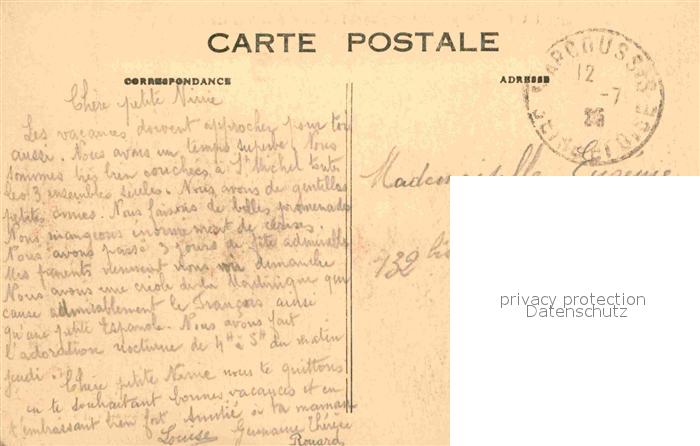 CARTE POSTALE
CORRESPONDANCE
ADRESSE
MARCOUSSIS
12
-7
SEINE-ET-OISE
Chère petite Ninie
Les vacances doivent approcher pour toi
aussi. Nous avons un temps superbe. Nous
sommes très bien couchées à St Michel toutes
les 3 ensembles seules. Nous avons de gentilles
petites amies. Nous faisons de belles promenades
Nous mangeons énormément de cerises.
Nous avons passé 3 jours de fête admirables
Mes parents viennent nous voir dimanche
Nous avons une créole de la Martinique qui
cause admirablement le Français aussi
qu'une petite Espagnole. Nous avons fait
l'adoration nocturne de 4H à 5H du matin
jeudi. Chère petite Ninie nous te quittons
en te souhaitant bonnes vacances et en
t'embrassant bien fort. Amitié à ta maman
Louise Germaine Thérèse
Rouard
Mademoiselle Eugénie
132 bis
privacy protection
Datenschutz